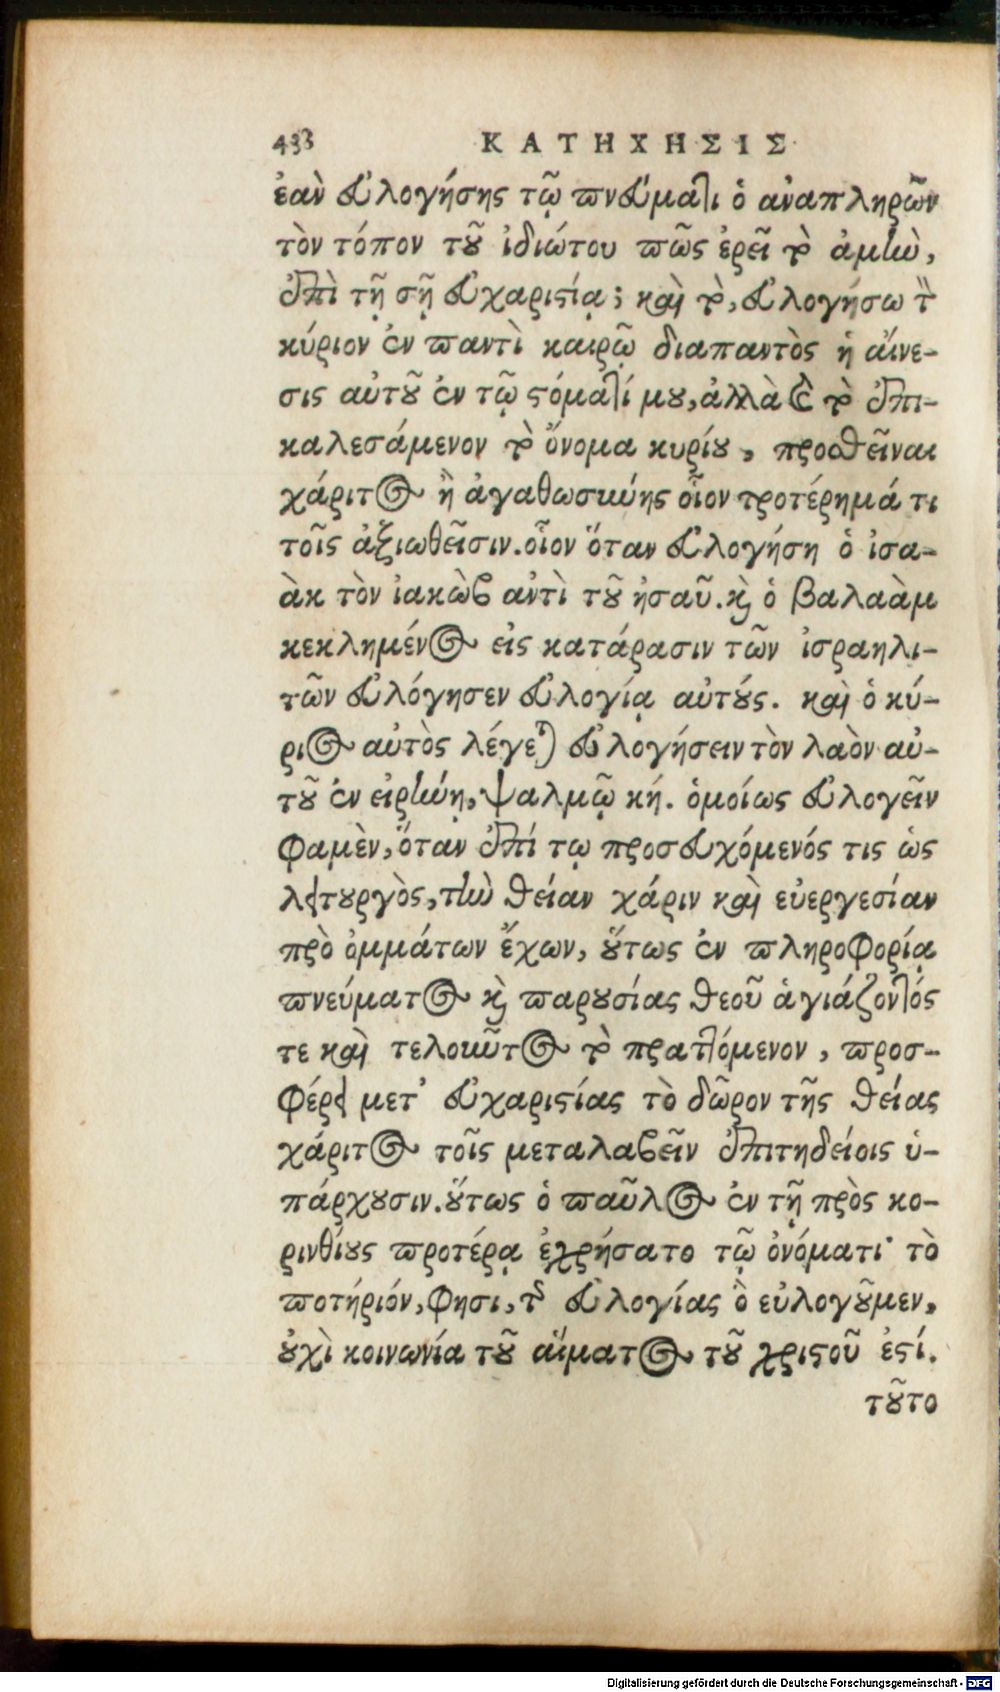 433 ΚΑΤΗΧΗΣΙΣ
ἐὰν εὐλογήσης τῷ πνεύματι ὁ ἀναπληρῶν
τὸν τόπον τοῦ ἰδιώτου πῶς ἐρεῖ τὸ ἀμὴν,
ἐπὶ τῇ σῇ εὐχαριστίᾳ; καὶ τὸ, εὐλογήσω τὸν
κύριον ἐν παντὶ καιρῷ διαπαντὸς ἡ αἴνε-
σις αὐτοῦ ἐν τῷ στόματί μου, ἀλλὰ καὶ τὸ ἐπι-
καλεσάμενον τὸ ὄνομα κυρίου, προσθεῖναι
χάριτος ἢ ἀγαθωσύνης οἷον προτέρημά τι
τοῖς ἀξιωθεῖσιν. οἷον ὅταν εὐλογήση ὁ ἰσα-
ὰκ τὸν ἰακὼβ ἀντὶ τοῦ ἠσαῦ. καὶ ὁ βαλαὰμ
κεκλημένος εἰς κατάρασιν τῶν ἰσραηλι-
τῶν εὐλόγησεν εὐλογίᾳ αὐτούς. καὶ ὁ κύ-
ριος αὐτὸς λέγεται εὐλογήσειν τὸν λαὸν αὐ-
τοῦ ἐν εἰρήνῃ, ψαλμῷ κή. ὁμοίως εὐλογεῖν
φαμὲν, ὅταν ἐπί τῳ προσευχόμενός τις ὡς
λειτουργὸς, τὴν θείαν χάριν καὶ εὐεργεσίαν
πρὸ ὀμμάτων ἔχων, οὕτως ἐν πληροφορίᾳ
πνεύματος καὶ παρουσίας θεοῦ ἁγιάζοντός
τε καὶ τελοιοῦντος τὸ πραττόμενον, προσ-
φέρει μετ' εὐχαριστίας τὸ δῶρον τῆς θείας
χάριτος τοῖς μεταλαβεῖν ἐπιτηδείοις ὑ-
πάρχουσιν. οὕτως ὁ παῦλος ἐν τῇ πρὸς κο-
ρινθίους προτέρᾳ ἐχρήσατο τῷ ὀνόματι· τὸ
ποτήριόν, φησι, τῆς εὐλογίας ὃ εὐλογοῦμεν,
οὐχὶ κοινωνία τοῦ αἵματος τοῦ χριστοῦ ἐστί.
τοῦτο
Digitalisierung gefördert durch die Deutsche Forschungsgemeinschaft - DFG